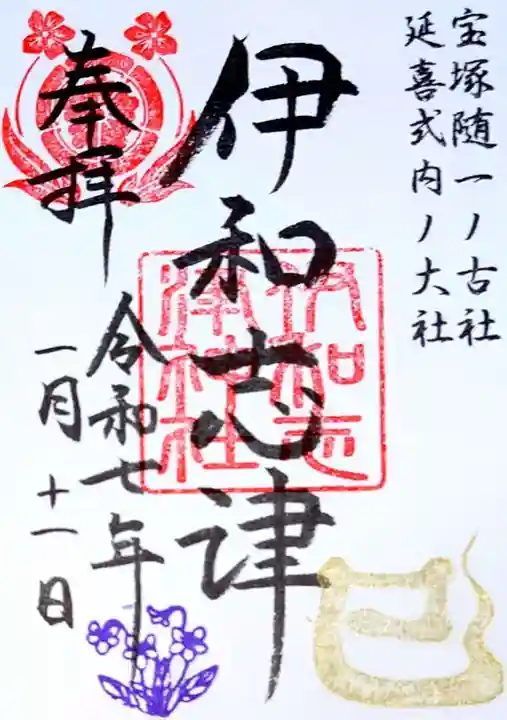 宝塚随一ノ古社
延喜式内ノ大社
伊和志津
伊和志
津神社
奉拝
令和七年
一月十一日
巳